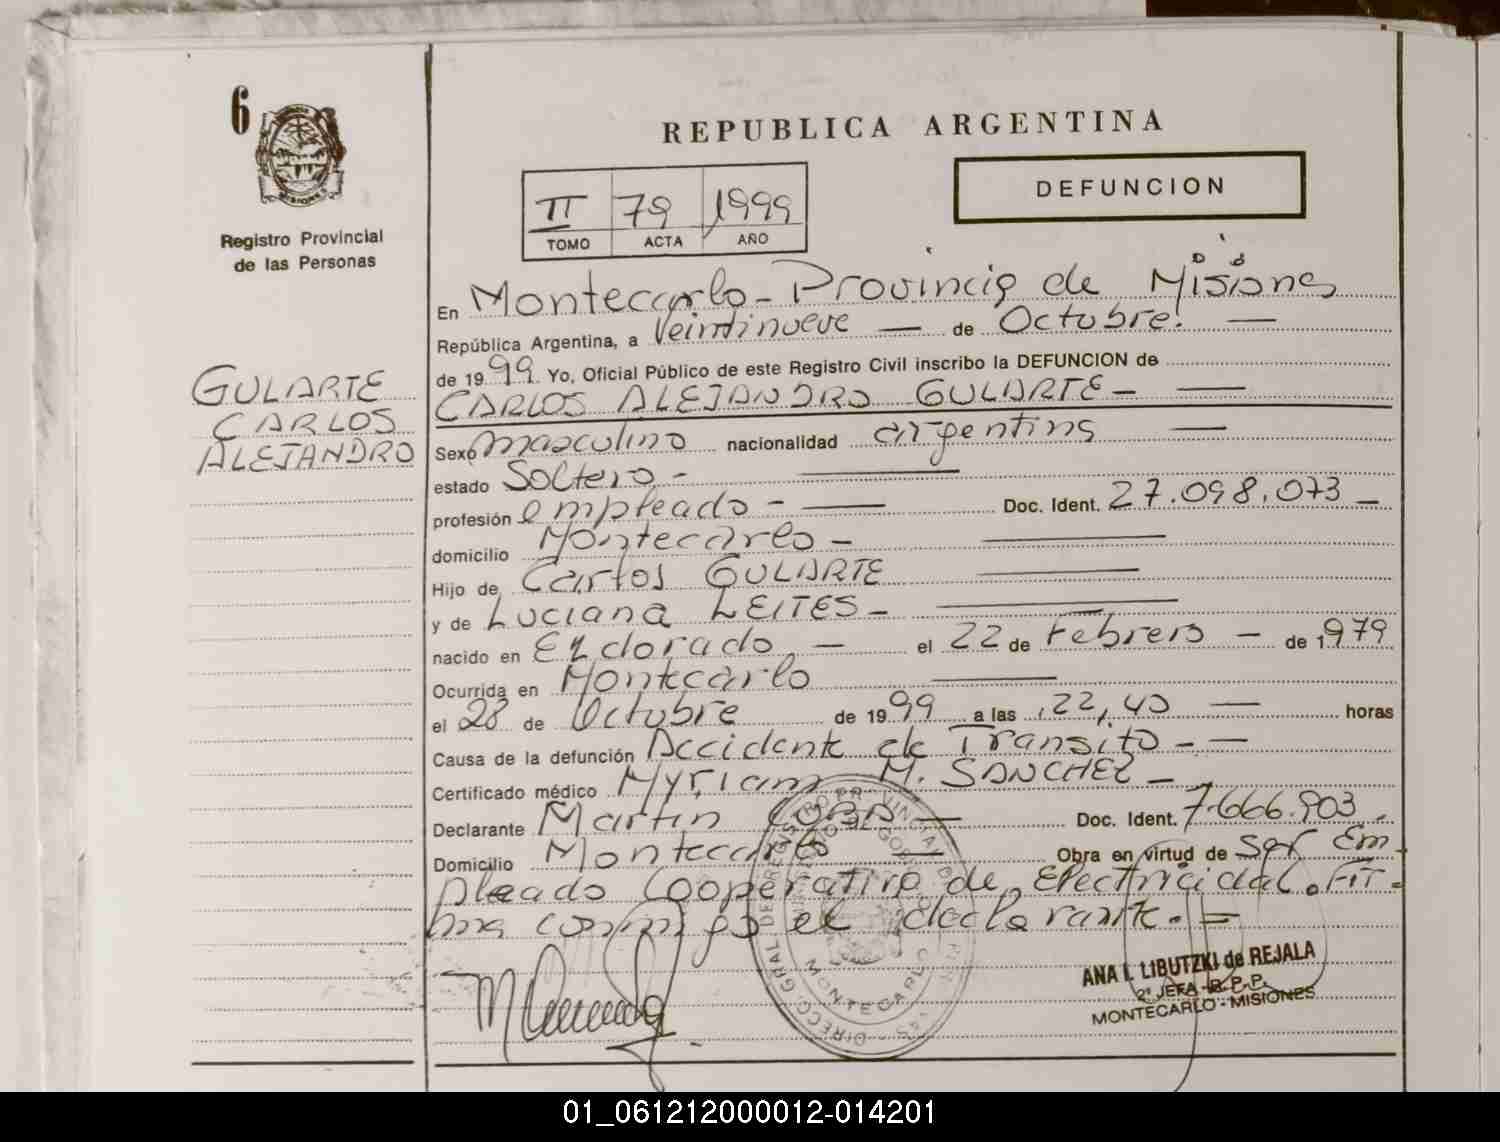 6
REPUBLICA ARGENTINA
DEFUNCION
II 79 1999
TOMO ACTA AÑO
Registro Provincial
de las Personas
En Montecarlo - Provincia de Misiones
República Argentina, a Veintinueve — de Octubre. —
de 1999. Yo, Oficial Público de este Registro Civil inscribo la DEFUNCION de
CARLOS ALEJANDRO GULARTE - —
GULARTE
CARLOS
ALEJANDRO
Sexo masculino nacionalidad argentina —
estado Soltero -
profesión empleado - — Doc. Ident. 27.098.073 -
domicilio Montecarlo -
Hijo de Carlos GULARTE
y de Luciana LEITES -
nacido en Eldorado — el 22 de Febrero - de 1979
Ocurrida en Montecarlo
el 28 de Octubre de 1999 a las 22,40 — horas
Causa de la defunción Accidente de Transito - -
Certificado médico Myriam M. SANCHEZ -
Declarante Martin — Doc. Ident. 7.666.903.
Domicilio Montecarlo — Obra en virtud de ser Em-
pleado Cooperativa de Electricidad. Fir-
ma conmigo el declarante. -
MONTECARLO
ANA I. LIBUTZKI de REJALA
2ª JEFA - R.P.P.
MONTECARLO - MISIONES
01_061212000012-014201